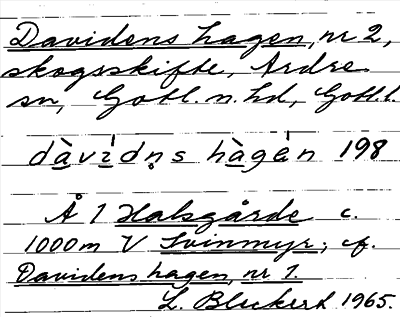 Davidens hagen, nr 2,
skogsskifte, Ardre
sn, Gotl. n. hd., Gotl. l.
dàvídṇs hàgèn 198
Å 1 Halsgårde c.
1000m V Svinmyr; cf.
Davidens hagen, nr 1.
L. 1965.